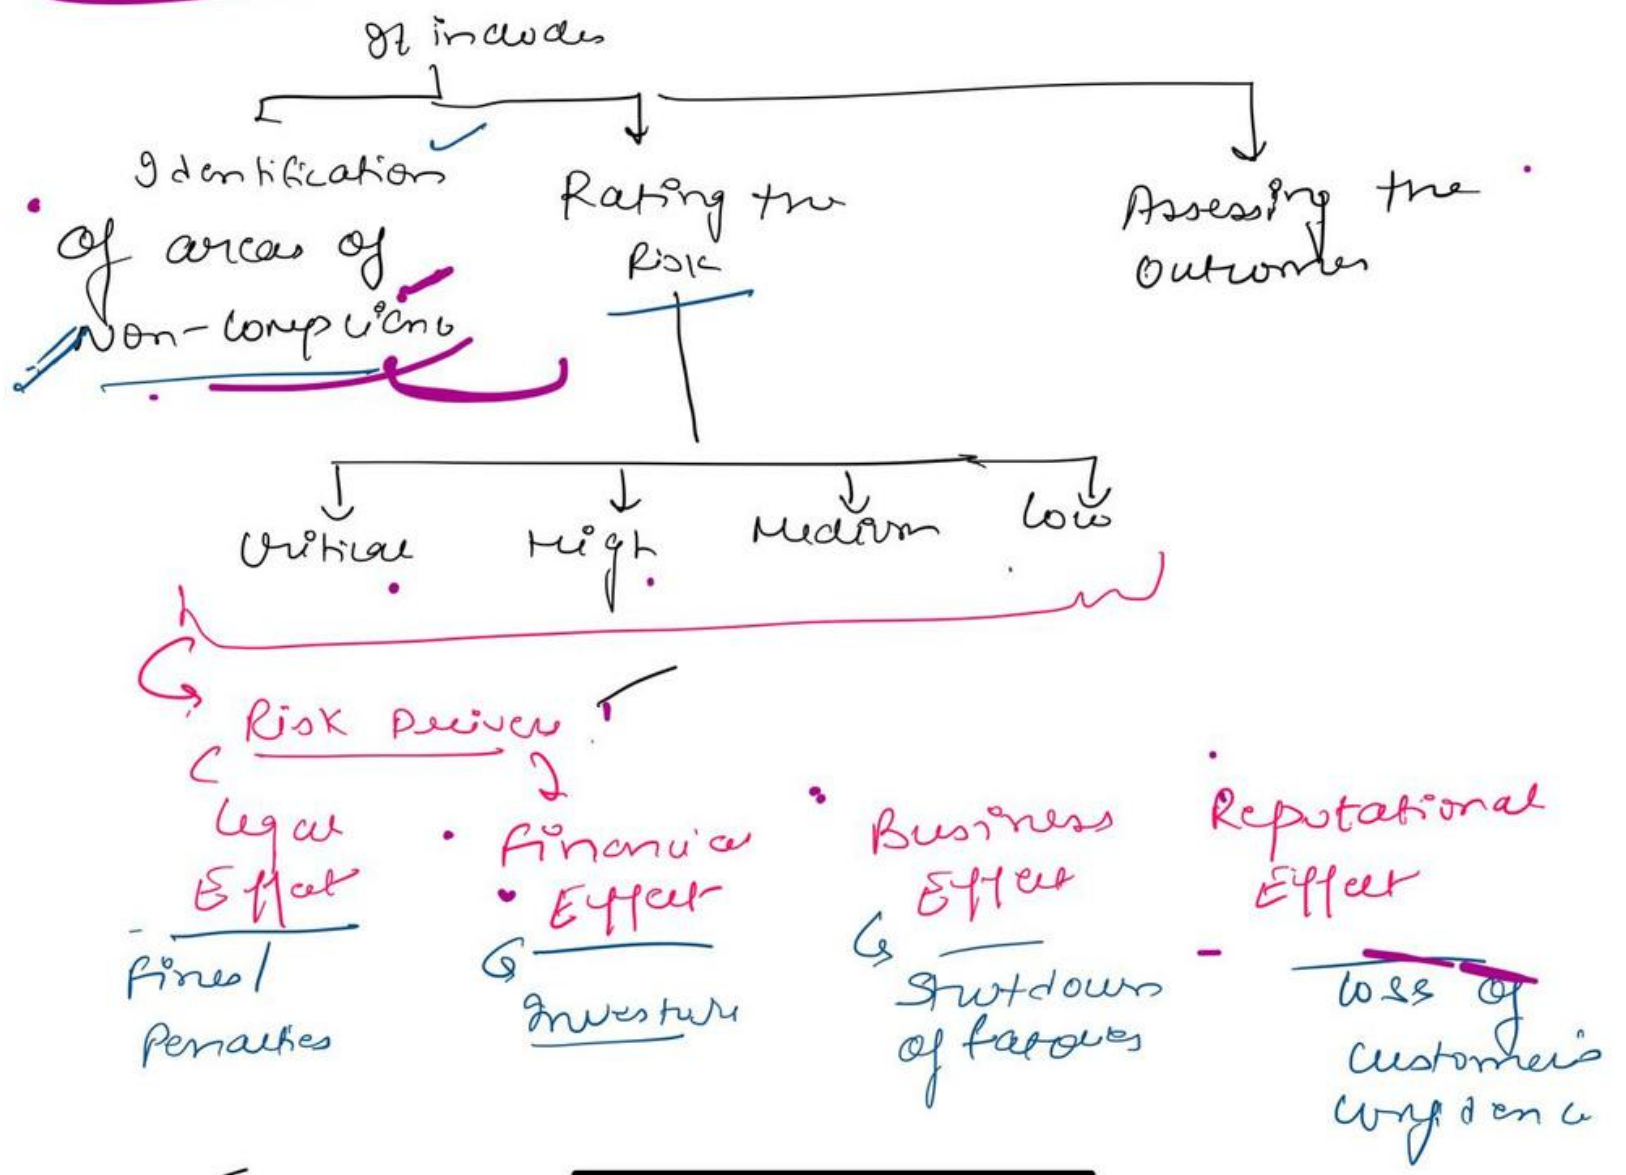 It includes
Identification
Of areas of
Non-compliance
Rating the
Risk
Assessing the
Outcomes
Critical
High
Medium
Low
Risk Drivers
Legal
Effect
Fines/
Penalties
Financial
Effect
Investors
Business
Effect
Shutdown
of
Reputational
Effect
loss of
customer's
confidence